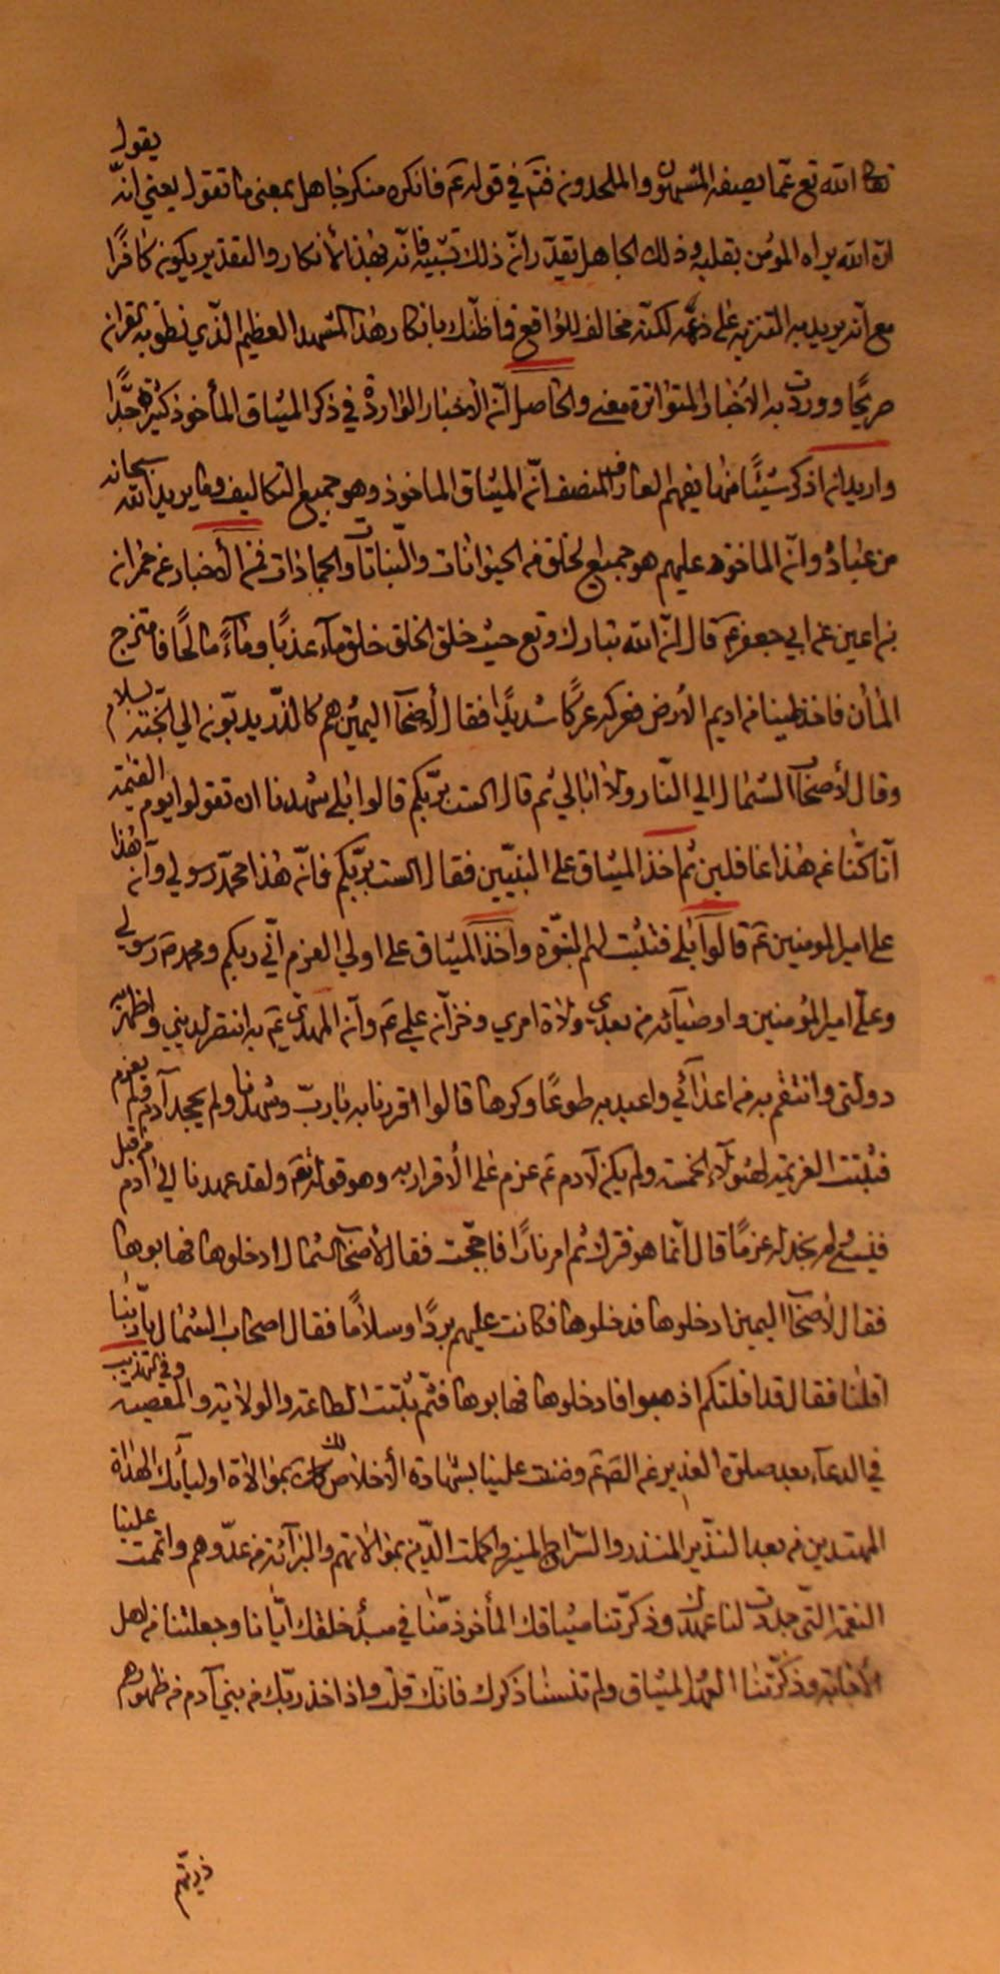 تعالى الله تع عمّا يصفه المشبهون والملحدون فتم في قوله عم فانكره منكر جاهل بمعنى ما تقول يعني انّه يقول
انّ الله يراه المؤمن بقلبه وذلك الجاهل يقدّر انّ ذلك تشبيه فانّه بهذا الأنكار والتقدير يكون كافرًا
مع انّه يريد به التنزيه على زعمه لكنّه مخالف للواقع فما ظنّك بانكار هذا المشهد العظيم الذّي نطق به القران
صريحًا ووردت به الاخبار المتواترة معنى والحاصل انّ الاخبار الواردة في ذكر الميثاق المأخوذ كثيرة جدًّا
واريد ان اذكر شيئًا منها يفهم العارف المنصف انّ الميثاق الماخوذ وهو جميع التكاليف وما يريد الله سبحانه
من عباده وانّ الماخوذ عليهم هو جميع الخلق من الحيوانات والنّباتات والجمادات فمن الأخبار عن حمران
بن اعين عن ابي جعفر عم قال انّ الله تبارك وتع حيث خلق الخلق خلق ماء عذبًا وماءً مالحًا فامتزج
الماأن فاخذ طينا من اديم الارض فعركه عركًا شديدًا فقال لأصحاب اليمين هم كالذّر يدبّون الي الجنّة بسلام
وقال لأصحاب الشمال الي النّار ولا ابالي ثم قال الست بربّكم قالوا بلى شهدنا ان تقولوا يوم القيمة
انّا كنّا عن هذا غافلين ثم اخذ الميثاق على النبيّين فقال الست بربّكم فانّه هذا محمّد رسولي وانّه هذا
على امير المومنين عم قالوا بلى فثبت لهم النبوّة وأخذ الميثاق على اولي العزم انّي ربكم ومحمد ص رسولي
وعليّ امير المؤمنين واوصيآئه من بعدي ولاة امري وخزّان علمي عم وانّ المهدي عم به انتصر لديني واظهر به
دولتي وانتقم به من اعدائي واعبد به طوعًا وكرها قالوا اقررنا به يا ربّ وشهدنا ولم يجحد آدم فلم يعزم
فثبتت العزيمة لهؤلآء الخمسة ولم يكن لآدم عم عزم على الأقرار به وهو قوله تعم ولقد عهدنا الى ادم من قبل
فنسى ولم نجد له عزمًا قال انّما هو فترك ثم امر نارًا فاججت فقال لأصحاب الشمال ادخلوها فهابوها
فقال لأصحاب اليمين ادخلوها فدخلوها فكانت عليهم بردًا وسلامًا فقال اصحاب الشمال يا ربنا
اقلنا فقال قد اقلتكم اذهبوا فادخلوها فهابوها فثم ثبتت الطاعة والولاية والمعصية وفي التهذيب
في الدعاء بعد صلوة الغدير عن الصم عم ومننت علينا بشهادة الأخلاص لك بموالاة اوليائك الهداة
المهتدين من بعد النذّير المنذر والسّراج المنير واكملت الدّين بموالاتهم والبرآئة من عدّوهم واتممت علينا
النعمة التّي جددت لنا عهدك وذكرّتنا ميثاقك المأخوذ منّا في مبدأ خلقك ايّانا وجعلتنا من اهل
الأجابة وذكّرتنا العهد الميثاق ولم تنسنا ذكرك فانّك قلت واذ اخذ ربّك من بني آدم من ظهورهم
ذريّتهم